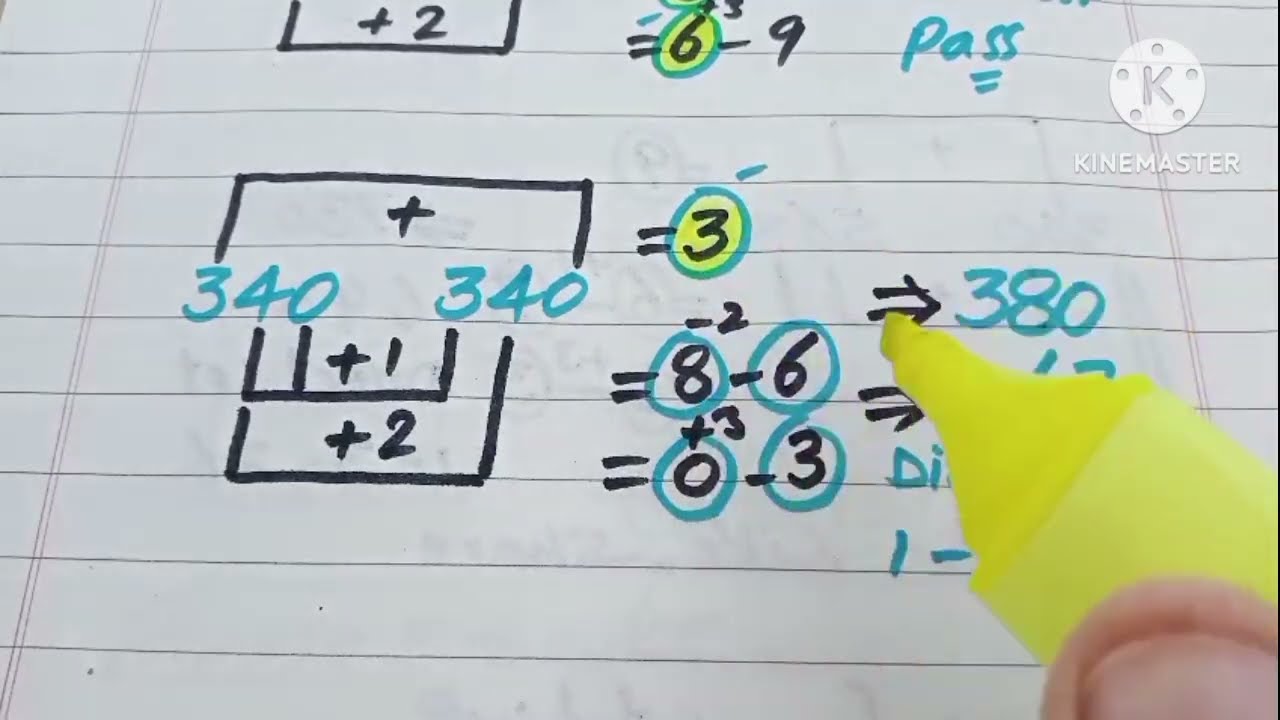 +2
+3
=6-9
Pass
K
KINEMASTER
+
=3
340 340
⇒ 380
-2
+1
=8-6
⇒
+3
+2
=0-3
1-